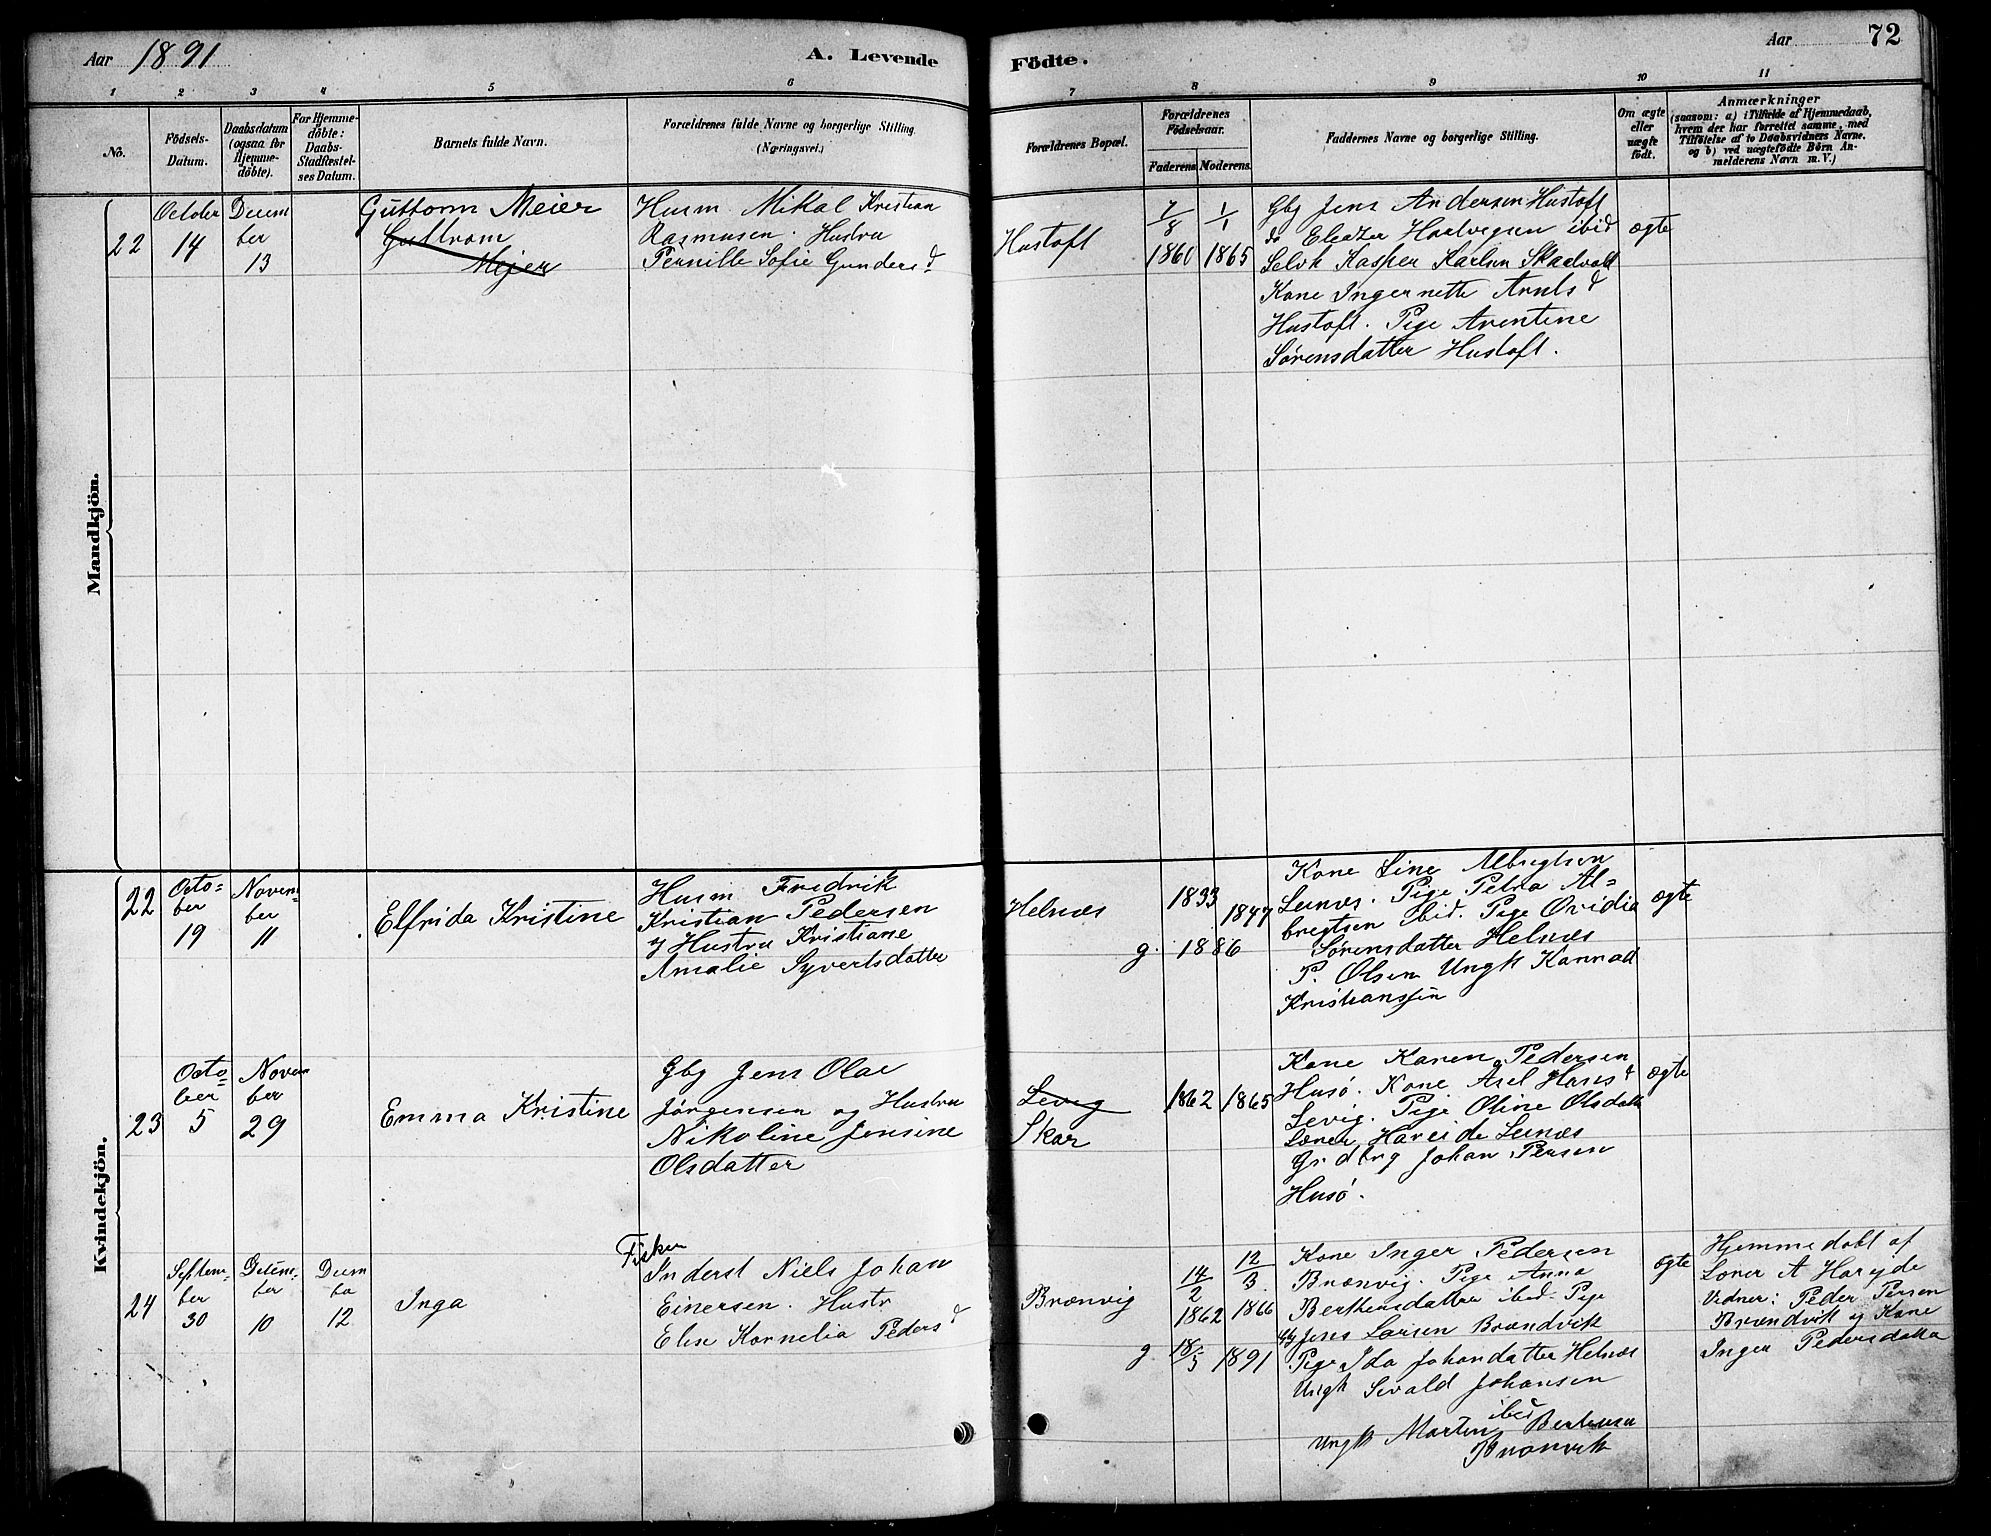 Aar 1891
A. Levende
Födte.
Aar
72
1 2 3 4 5 6 7 8 9 10 11
No.
Födsels-
Datum.
Daabsdatum
(ogsaa for
Hjemme-
döbte).
For Hjemme-
döbte:
Daabs-
Stadfæstel-
ses Datum.
Barnets fulde Navn.
Forældrenes fulde Navne og borgerlige Stilling.
(Næringsvei.)
Forældrenes Bopæl.
Forældrenes
Födselsaar.
Faderens Moderens.
Faddernes Navne og borgerlige Stilling.
Om ægte
eller
uægte
födt.
Anmærkninger
(saasom: a) i Tilfælde af Hjemmedaab,
hvem der har forrettet samme, med
Tilföielse af to Daabsvidners Navne.
og b) ved uægtefödte Börn An-
melderens Navn m. V.)
Mandkjön.
22
October
14
Decem
ber
13
Guttorm Meier
Guttrom
Mejer
Husm. Mikal Kristian
Rasmusen. Hustru
Pernille Sofie Gundersd
Hustoft
7/8
1860
1/1
1865
Gbg Jens Andersen Hustoft
do Eleazer Hartvigsen ibid
Selvh Kasper Karlsen Skarvold
Kone Ingernette Arntsd
Hustoft. Pige Arentine
Sörensdatter Hustoft.
ægte
Kvindekjön.
22
Octo-
ber
19
Novem-
ber
11
Elfrida Kristine
Husm Fredrik
Kristian Pedersen
og Hustru Kristiane
Amalie Syvertsdatter
Helnæs
1833
1847
g. 1886
Kone Line Albregtsen
Leinæs. Pige Petra Al-
bregtsen ibid. Pige Ovidia
Sørensdatter Helnæs
P. Olsen Ungk Konrad
Kristiansen
ægte
23
Octo-
ber
5
Novem
ber
29
Emma Kristine
Gbg Jens Olai
Jørgensen og Hustru
Nikoline Jensine
Olsdatter
Levig
Skar
1862
1865
Kone Karen Pedersen
Husö. Kone Axel Hansd
Levig. Pige Oline Olsdatt
Lærer Hareide Leinæs
Grdbrg Johan Persen
Husö.
ægte
24
Septem-
ber
30
October
10
Decem
ber
12
Inga
Fisker
Inderst Niels Johan
Einersen. Hustr
Elen Kornelia Pedersd
Brænvig
14/2
1862
12/3
1866
g. 18/5 1891
Kone Inger Pedersen
Brænvig. Pige Anna
Berthensdatter ibid. Pige
Gbg Jens Larsen Brændvik
Pige Ida Johandatter Helnæs
Ungk Sevald Johansen
ibid
Ungk Martin Bertensen
Brænvik
ægte
Hjemmedöbt af
Lærer A Hareide
Vidner: Peder Persen
Brændvik og Kone
Inger Pedersdatter